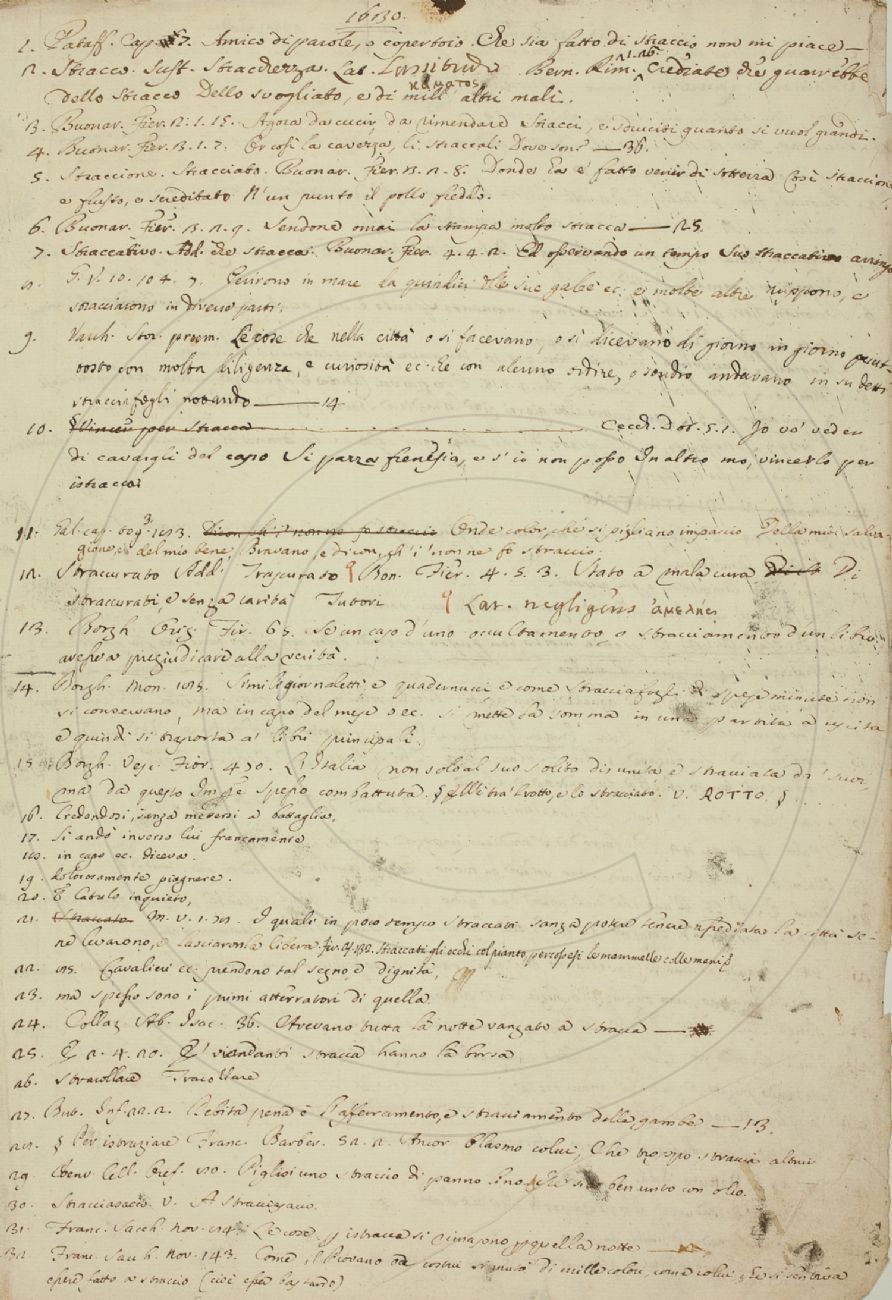 1680.
1. Pataff. Cap. 7. Amico di parole, o copertoio. Che sia fatto di straccio non mi piace —
2. Stracco. Sust. Stracchezza. Lat. Lassitudo κάματος Bern. Rim. 1. 26. Crediate che guarrebbe
dello stracco dello svogliato, e di mill' altri mali.
3. Buonar. Fier. 2. 1. 15. Agora da cucir, da rimendare stracci, e sdruciti quanto si vuol grandi.
4. Buonar. Fier. 3. 1. 7. Er così la cavezza, li straccali Dove son? — 36.
5. Straccione. Stracciato. Buonar. Fier. 3. 2. 8. Donde l'ha e' fatto venir di sotterra Così straccione
e frusto, e screditato N' un punto il pollo freddo.
6. Buonar. Fier. 3. 2. 9. Sendone omai la stampa molto stracca — 25.
7. Straccativo. Add. che stracca. Buonar. Fier. 4. 4. 2. Ed osservando un tempo suo straccativo arringo
G. V. 10. 104. 7. Perirono in mare da quindici delle sue galee ec. e molte altre ruppono, e
stracciarono in diverse parti.
9. Varch. Stor. proem. Le cose che nella città o si facevano, o si dicevano di giorno in giorno piut-
tosto con molta diligenza, e curiosità ec. che con alcuno ordine, o studio andavano in su detti
stracciafogli notando — 14
10. Vincer per stracca Cecch. Dot. 5. 1. Io vo' veder
di cavargli del capo Si pazza frenesia, e s' io non posso In altro mo, vincerlo per
istracca
11. Onde color, che si pigliano impaccio Della mia salva-
gione, e del mio bene, Bravano, e dicon, ch' i' non ne fo straccio.
12. Straccurato Add. Trascurato Bon. Fier. 4. 5. 3. Stato a mala cura Di
straccurati, e senza carità Tutori Lat. negligens ἀμελής
13. Borgh. Orig. Fir. 67. Se un caso d'uno occultamento, o stracciamento d'un libro
avesse a pregiudicare alla verità.
14. Borgh. Mon. Simili giornaletti, e quadernucci e come stracciafogli di spese minute non
si conservano, ma in capo del mese o ec. si mette la somma in una partita a uscita
e quindi si trasporta a' libri principali.
15. Borgh. Vesc. Fior. 470. L'Italia non solo al suo solito disunita e stracciata da' suoi
ma da questo Imp.re spesso combattuta. § tra 'l rotto, e lo stracciato. v. ROTTO §.
16. Credendosi, sanza mettersi a battaglia,
17. Si andò inverso lui francamente
18. in capo ec. diceva.
19. dolorosamente piagnere.
20. E Catulo inquieto,
21. Straccato. M. V. 1. I quali in poco tempo straccati sanza poter tenere assediata la città se-
ne levarono, e lasciaronla libera Straccati gli occhi col pianto, percossesi le mammelle colle mani
22. Cavalieri ec. prendono tal segno, e dignità,
23. ma spesso sono i primi atterratori di quella.
24. Collaz. Ab. Isac. 36. Avevano tutta la notte vangato a stracca —
25. E 2. 4. 20. E' viandanti stracca hanno la borsa
26. Stracollare Tracollare
27. But. Inf. 22. 2. Debita pena è l'afferramento, e stracciamento delle gambe — 13.
28. § Per istraziare Franc. Barber. 52. 2. Ancor blasmo colui, Che troppo straccia altrui
29. Benv. Cell. Oref. Piglisi uno straccio di panno lino, che sia ben unto con olio.
30. Stracciasacco. V. A stracciasacco.
31. Franc. Sacch. nov. Le cose p istracca si rimasono p quella notte —
32. Franc. Sacch. nov. 143. Come il Piovano ode costui si mutò di mille colori, come colui, che si sentiva
essere fatto a straccio (cioè esser bastardo)